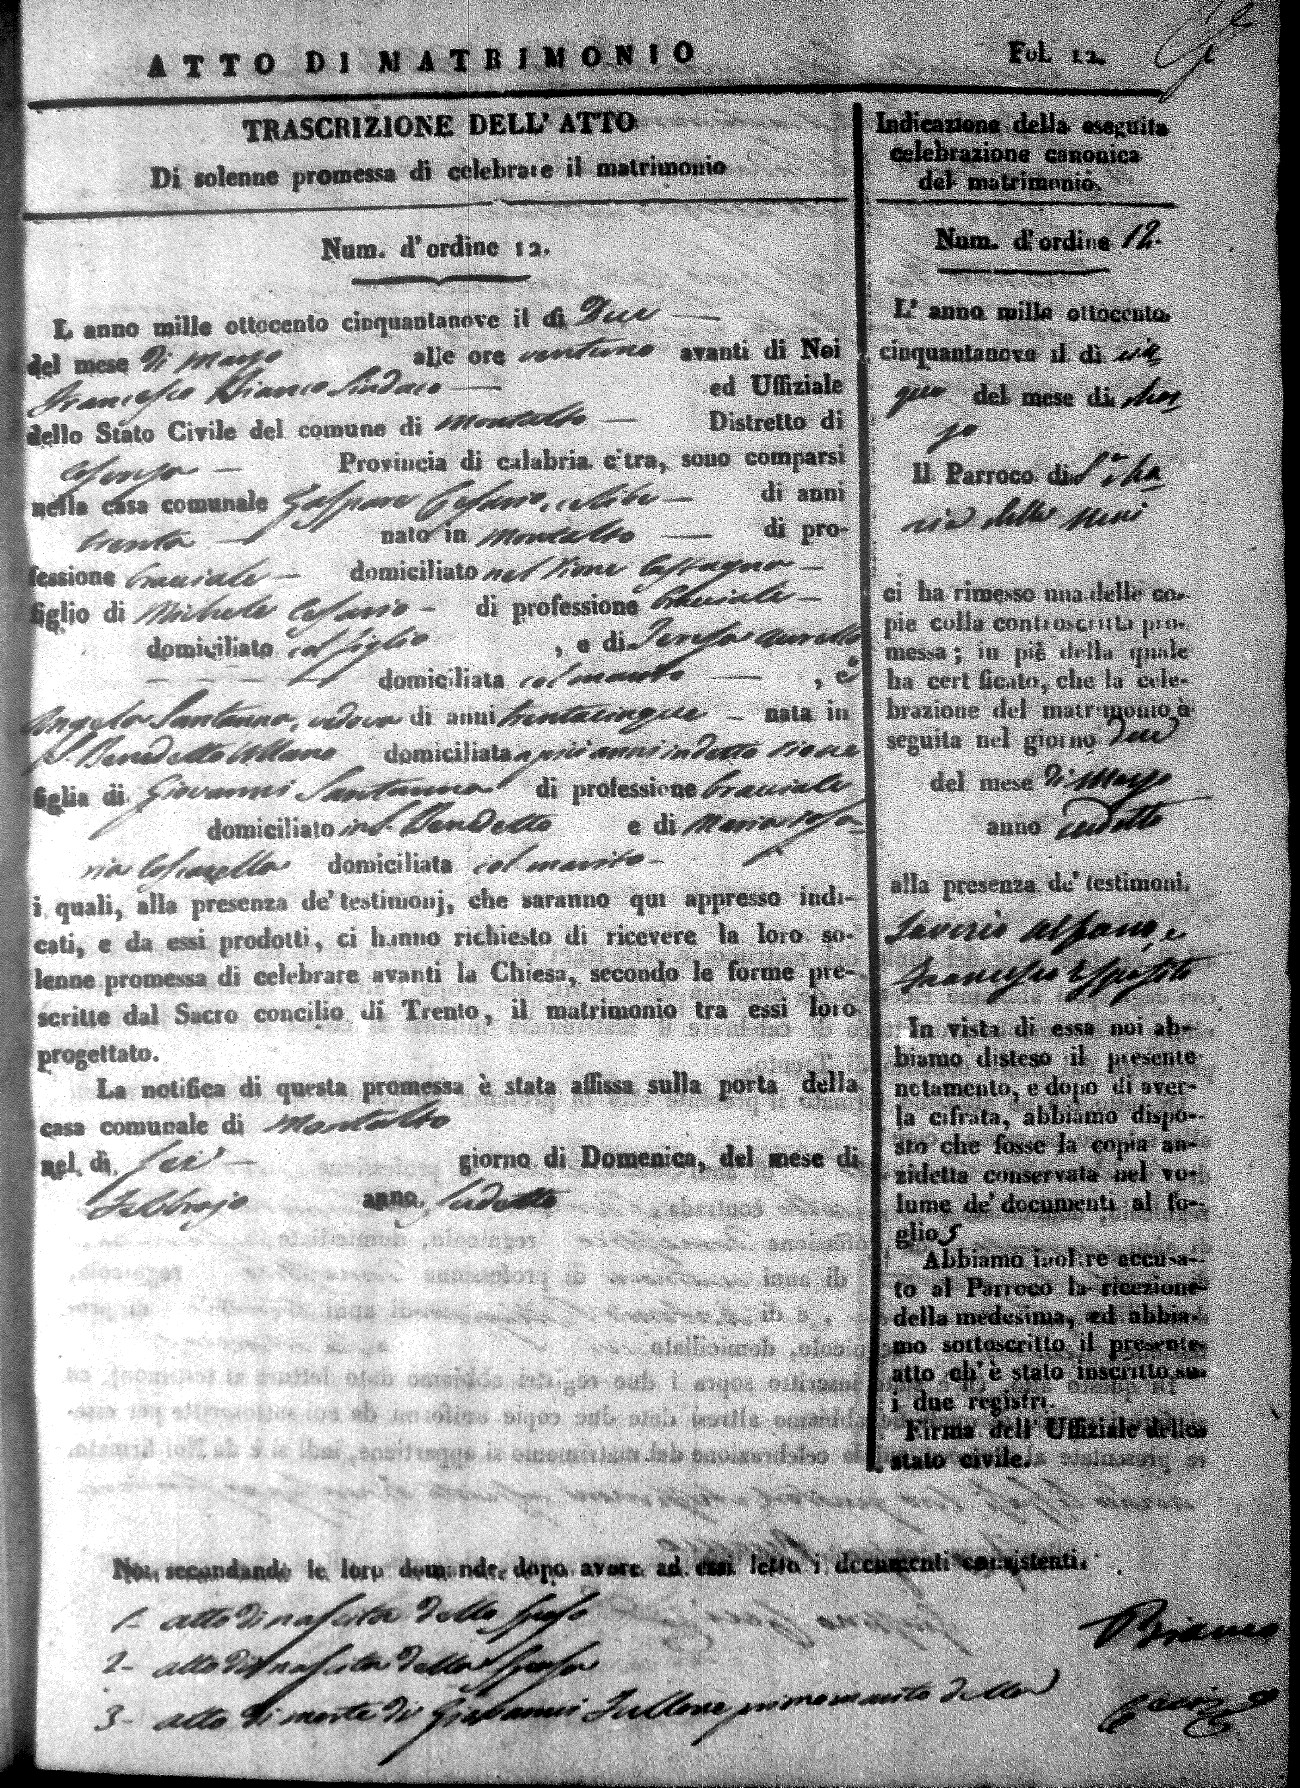 ATTO DI MATRIMONIO Fol. 12.
TRASCRIZIONE DELL' ATTO
Di solenne promessa di celebrare il matrimonio
Num. d'ordine 12.
L anno mille ottocento cinquantanove il di Due
del mese di Marzo alle ore ventuno avanti di Noi
Francesco Bianco Sindaco ed Uffiziale
dello Stato Civile del comune di Montalto Distretto di
Cosenza Provincia di calabria citra, sono comparsi
nella casa comunale Gaspare Cesario, celibe di anni
trenta nato in Montalto di pro-
fessione bracciale domiciliato nel Rione
figlio di Michele Cesario di professione bracciale
domiciliato col figlio, e di Teresa Aurello
domiciliata col marito, e
Angela Santanna, vedova di anni trentacinque nata in
S. Benedetto Ullano domiciliata a più anni in detto rione
figlia di Giovanni Santanna di professione bracciale
domiciliato in S. Benedetto e di Maria Rosa-
ria domiciliata col marito
i quali, alla presenza de' testimonj, che saranno qui appresso indi-
cati, e da essi prodotti, ci hanno richiesto di ricevere la loro so-
lenne promessa di celebrare avanti la Chiesa, secondo le forme pre-
scritte dal Sacro concilio di Trento, il matrimonio tra essi loro
progettato.
La notifica di questa promessa è stata affissa sulla porta della
casa comunale di Montalto
nel dì sei giorno di Domenica, del mese di
Febbrajo anno sudetto
Indicazione della eseguita
celebrazione canonica
del matrimonio.
Num. d'ordine 12.
L' anno mille ottocento
cinquantanove il dì cin
que del mese di Mar
zo
Il Parroco di S. Ma
ria della
ci ha rimesso una delle co-
pie colla controscritta pro-
messa; in piè della quale
ha certificato, che la cele-
brazione del matrimonio è
seguita nel giorno due
del mese di Marzo
anno sudetto
alla presenza de' testimoni.
Saverio Alfano, e
Francesco Esposito
In vista di essa noi ab-
biamo disteso il presente
notamento, e dopo di aver-
la cifrata, abbiamo dispo-
sto che fosse la copia an-
zidetta conservata nel vo-
lume de' documenti al fo-
glio 5
Abbiamo inoltre accusa-
to al Parroco la ricezione
della medesima, ed abbia-
mo sottoscritto il presente
atto ch' è stato inscritto su
i due registri.
Firma dell' Uffiziale dello
stato civile.
Noi secondando le loro domande dopo avere ad essi letto i documenti consistenti.
1- atto di nascita dello sposo
2- atto di nascita della sposa
3- atto di morte di Giovanni Tullone primo marito della
Bianco